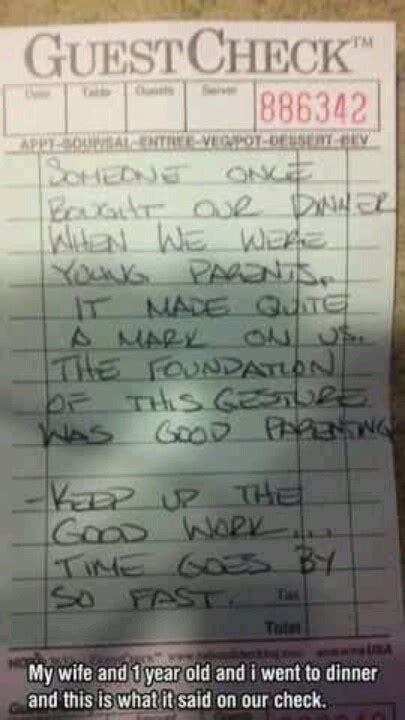 GUESTCHECK™
Date Table Guests Server
886342
APPT-SOUP/SAL-ENTREE-VEG/POT-DESSERT-BEV
SOMEONE ONCE
BOUGHT OUR DINNER
WHEN WE WERE
YOUNG PARENTS.
IT MADE QUITE
A MARK ON US.
THE FOUNDATION
OF THIS GESTURE
WAS GOOD PARENTING
-KEEP UP THE
GOOD WORK...
TIME GOES BY
SO FAST. Tax
Total
USA
My wife and 1 year old and i went to dinner
and this is what it said on our check.